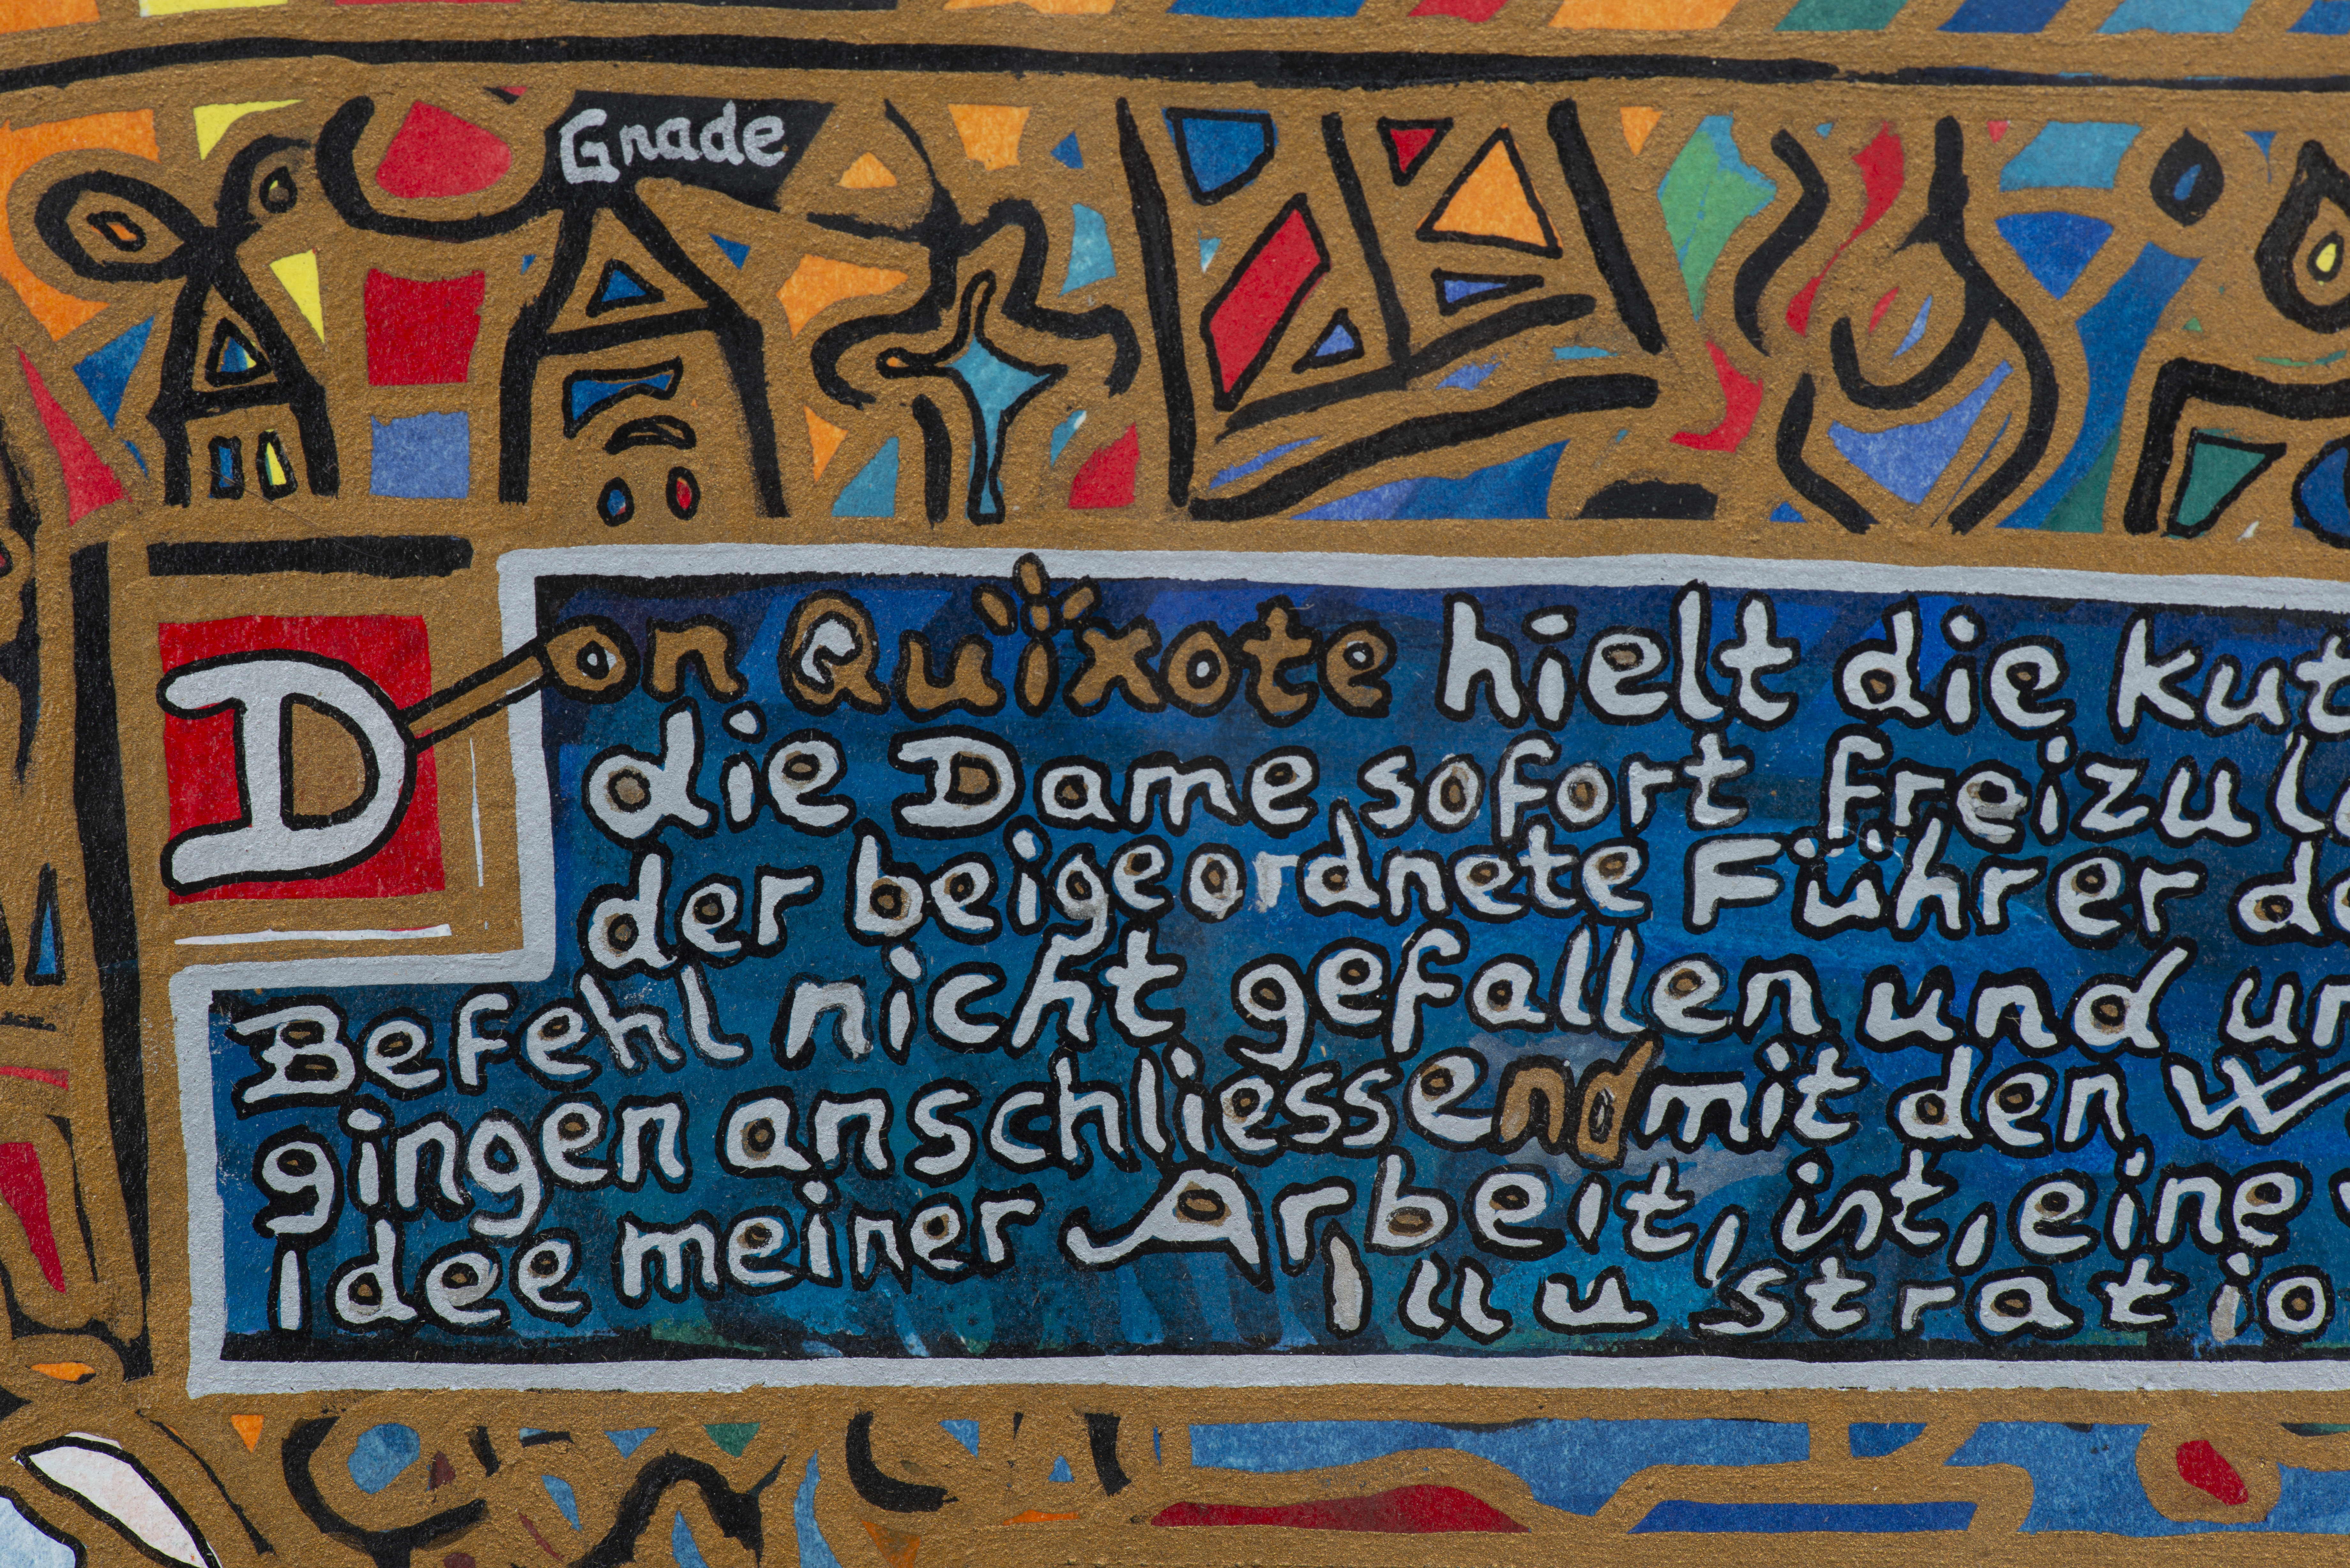 Gnade
Don Quixote hielt die kut
die Dame sofort freizul
der beigeordnete Führer de
Befehl nicht gefallen und
gingen anschliessend mit den
Idee meiner Arbeit, ist, eine
Illustratio